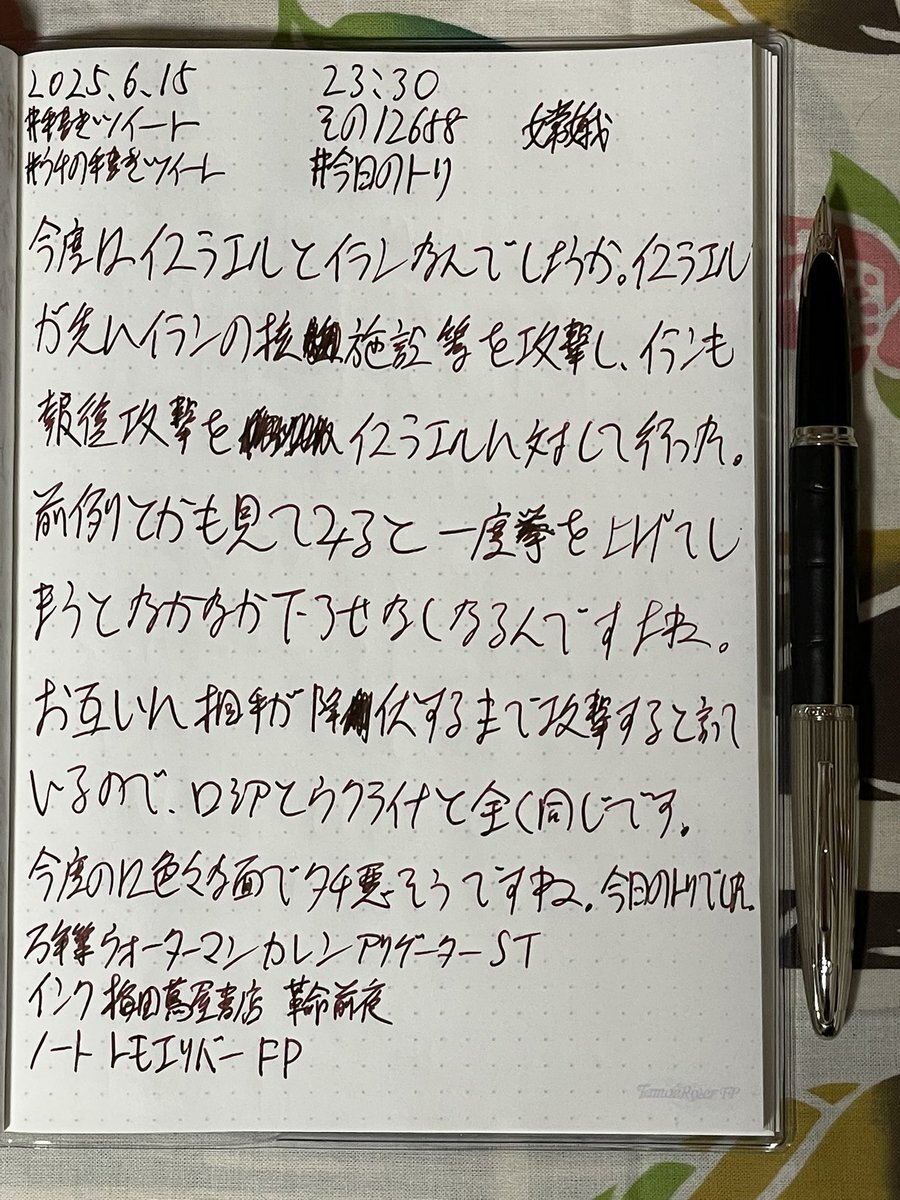 2025.6.15 23:30
#手書きツイート その12658 嫦娥
#うちの手書きツイート #今日のトリ
今度はイスラエルとイランなんでしょうか。イスラエル
が先にイランの核施設等を攻撃し、イランも
報復攻撃をイスラエルに対して行った。
前例とかも見てみると一度拳を上げてし
まうとなかなか下ろせなくなるんですよね。
お互いに相手が降伏するまで攻撃すると言って
いるので、ロシアとウクライナと全く同じです。
今度のは色々な面でタチ悪そうですね。今日のトリでした。
万年筆 ウォーターマン カレン アリゲーター ST
インク 梅田蔦屋書店 革命前夜
ノート トモエリバー FP
Tomoe River FP